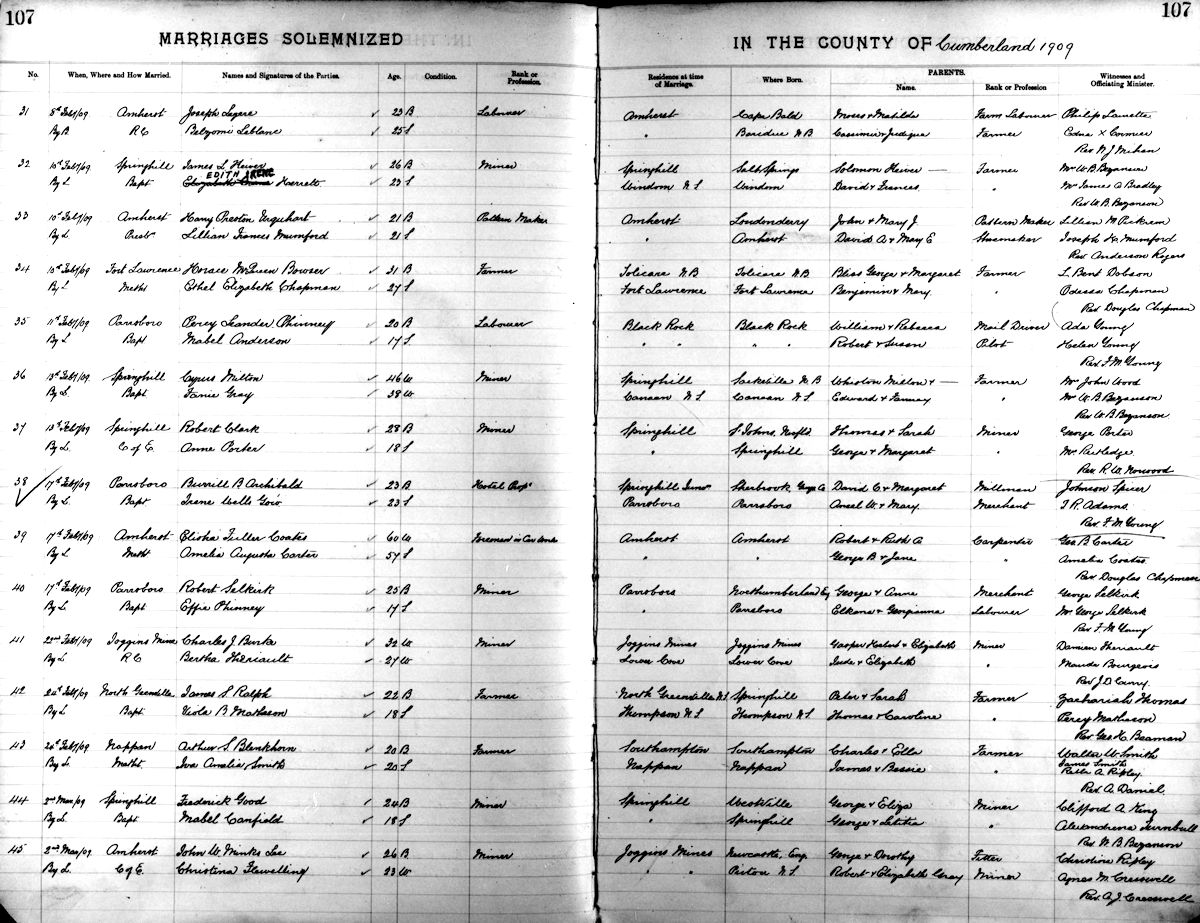 107
107
MARRIAGES SOLEMNIZED
IN THE COUNTY OF Cumberland 1909
No. When, Where and How Married. Names and Signatures of the Parties. Age. Condition. Rank or Profession. Residence at time of Marriage. Where Born. PARENTS. Name. Rank or Profession Witnesses and Officiating Minister.
31 8th Feb/09 Amherst Joseph Legere 23 B Labourer Amherst Cape Bald Moses & Matilda Farm Labourer Philip
By B R C Leblanc 25 S " N B Farmer Edna X Cormier
Rev
32 10th Feb/09 Springhill James L 26 B Miner Springhill Salt Springs Solomon — Farmer Mrs W. B. Bezanson
EDITH IRENE
By L Bapt 23 S Windom N S Windom David & Frances Mr James A Bradley
Rev W. B. Bezanson
33 10th Feb/09 Amherst Harry Preston Urquhart 21 B Pattern Maker Amherst Londonderry John & Mary J. Pattern Maker Lillian M
By L Presb Lillian Frances Mumford 21 S " Amherst David A & Mary E Shoemaker Joseph H. Mumford
Rev Anderson Rogers
34 10th Feb/09 Fort Lawrence Horace McQueen Bowser 31 B Farmer N B N B Bliss George & Margaret Farmer L. Bent Dobson
By L Meth Ethel Elizabeth Chapman 27 S Fort Lawrence Fort Lawrence Benjamin & Mary " Odessa Chapman
Rev Douglas Chapman
35 11th Feb/09 Parrsboro Percy Leander Phinney 20 B Labourer Black Rock Black Rock William & Rebecca Mail Driver Ada Young
By L Bapt Mabel Anderson 17 S " " " " Robert & Susan Pilot Helen Young
Rev F. M Young
36 13th Feb/09 Springhill Cyrus Milton 46 W Miner Springhill Sackville N B Milton & — Farmer Mr John Wood
By L Bapt Fanie Gray 38 W Canaan N S Canaan N S Edward & Fanny " Mrs W. B. Bezanson
Rev W. B Bezanson
37 13th Feb/09 Springhill Robert Clark 28 B Miner Springhill St Johns, Nfld Thomas & Sarah Miner George Porter
By L C of E Anne Porter 18 S " Springhill George & Margaret Mr Rutledge
Rev R. W. Norwood
38 17th Feb/09 Parrsboro Burrill B Archibald 23 B Hotel Prop Springhill Sherbrook, David C & Margaret Millman Johnson Spicer
By L Bapt Irene Wells 23 S Parrsboro Parrsboro W. & Mary Merchant T R. Adams
Rev F. M Young
39 17th Feb/09 Amherst Elisha Fuller Coates 60 W Foreman in Car Works Amherst Amherst Robert & Ruth A Carpenter Geo. B Carter
By L Meth Amelia Augusta Carter 57 S " George B & Jane " Amelia Coates
Rev Douglas Chapman
40 17th Feb/09 Parrsboro Robert Selkirk 25 B Miner Parrsboro Northumberland George & Anne Merchant George Selkirk
By L Bapt Effie Phinney 17 S " Parrsboro Elkana & Georgianna Labourer Mrs George Selkirk
Rev F. M Young
41 22nd Feb/09 Joggins Mines Charles J Burke 32 W Miner Joggins Mines Joggins Mines & Elizabeth Miner Damien Theriault
By L R C Bertha Theriault 27 W Lower Cove Lower Cove Jude & Elizabeth " Maude Bourgeois
Rev J. D. Curry
42 24th Feb/09 North Greenville James S Ralph 22 B Farmer North Greenville N.S. Springhill Peter & Sarah Farmer Zachariah Thomas
By L Bapt Viola B Matheson 18 S Thompson N S Thompson N S Thomas & Caroline " Percy Matheson
Rev Geo H. Beaman
43 24th Feb/09 Nappan Arthur S Blenkhorn 20 B Farmer Southampton Southampton Charles & Ella Farmer Walter W Smith
James Smith
By L Meth Iva Amelia Smith 20 S Nappan Nappan James & Bessie " A Ripley
Rev A. Daniel
44 2nd Mar/09 Springhill Frederick Good 24 B Miner Springhill Westville George & Eliza Miner Clifford A King
By L Bapt Mabel Canfield 18 S Springhill George & Letitia " Alexandrena Turnbull
Rev W. B Bezanson
45 2nd Mar/09 Amherst John W. Minks Lee 26 B Miner Joggins Mines Newcastle, Eng. George & Dorothy Fitter Christina Ripley
By L. C of E. Christina Flewelling 23 W " " Pictou N.S. Robert & Elizabeth Gray Miner Agnes M. Cresswell
Rev. A. J. Cresswell